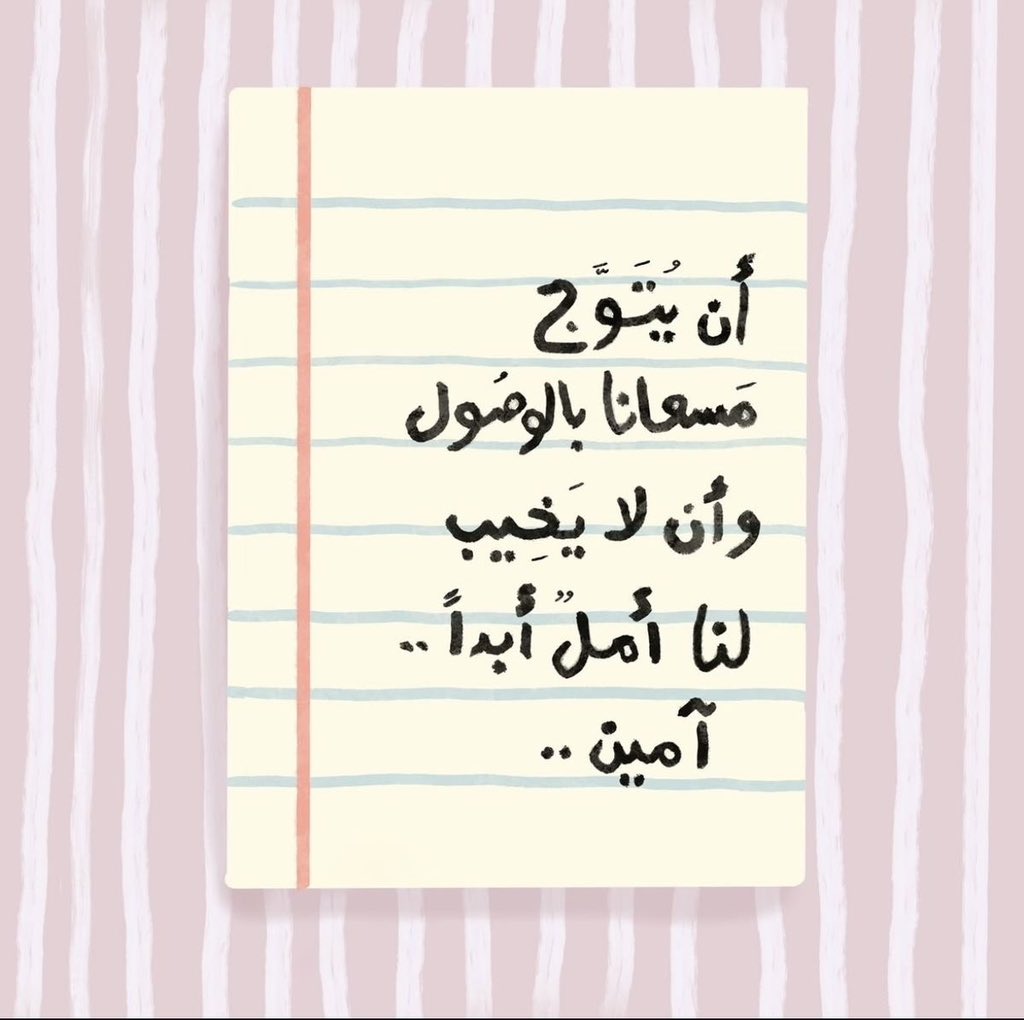 أن يُتَوَّج
مَسعانا بالوصُول
وأن لا يَخِيب
لنا أملٌ أبداً ..
آمين ..